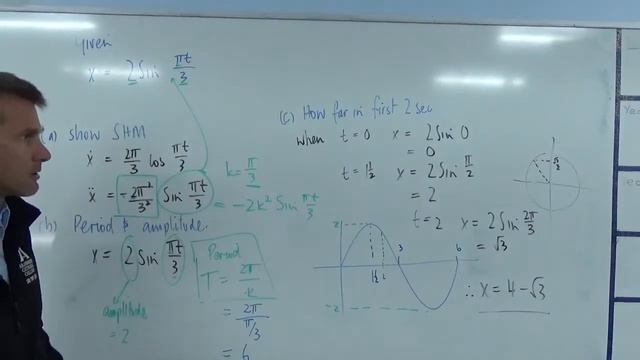 Given
x = 2 Sin πt/3
(a) Show SHM
ẋ = 2π/3 cos πt/3
ẍ = -2π²/3² Sin πt/3
k = π/3
= -2k² Sin πt/3
(b) Period & amplitude.
x = 2 Sin πt/3
amplitude
= 2
Period
T = 2π/k
= 2π/π/3
= 6
(c) How far in first 2 sec
when t = 0 x = 2 Sin 0
= 0
t = 1½ x = 2 Sin π/2
= 2
t = 2 x = 2 Sin 2π/3
= √3
2
-2
1½
2
3
6
∴ x = 4 - √3